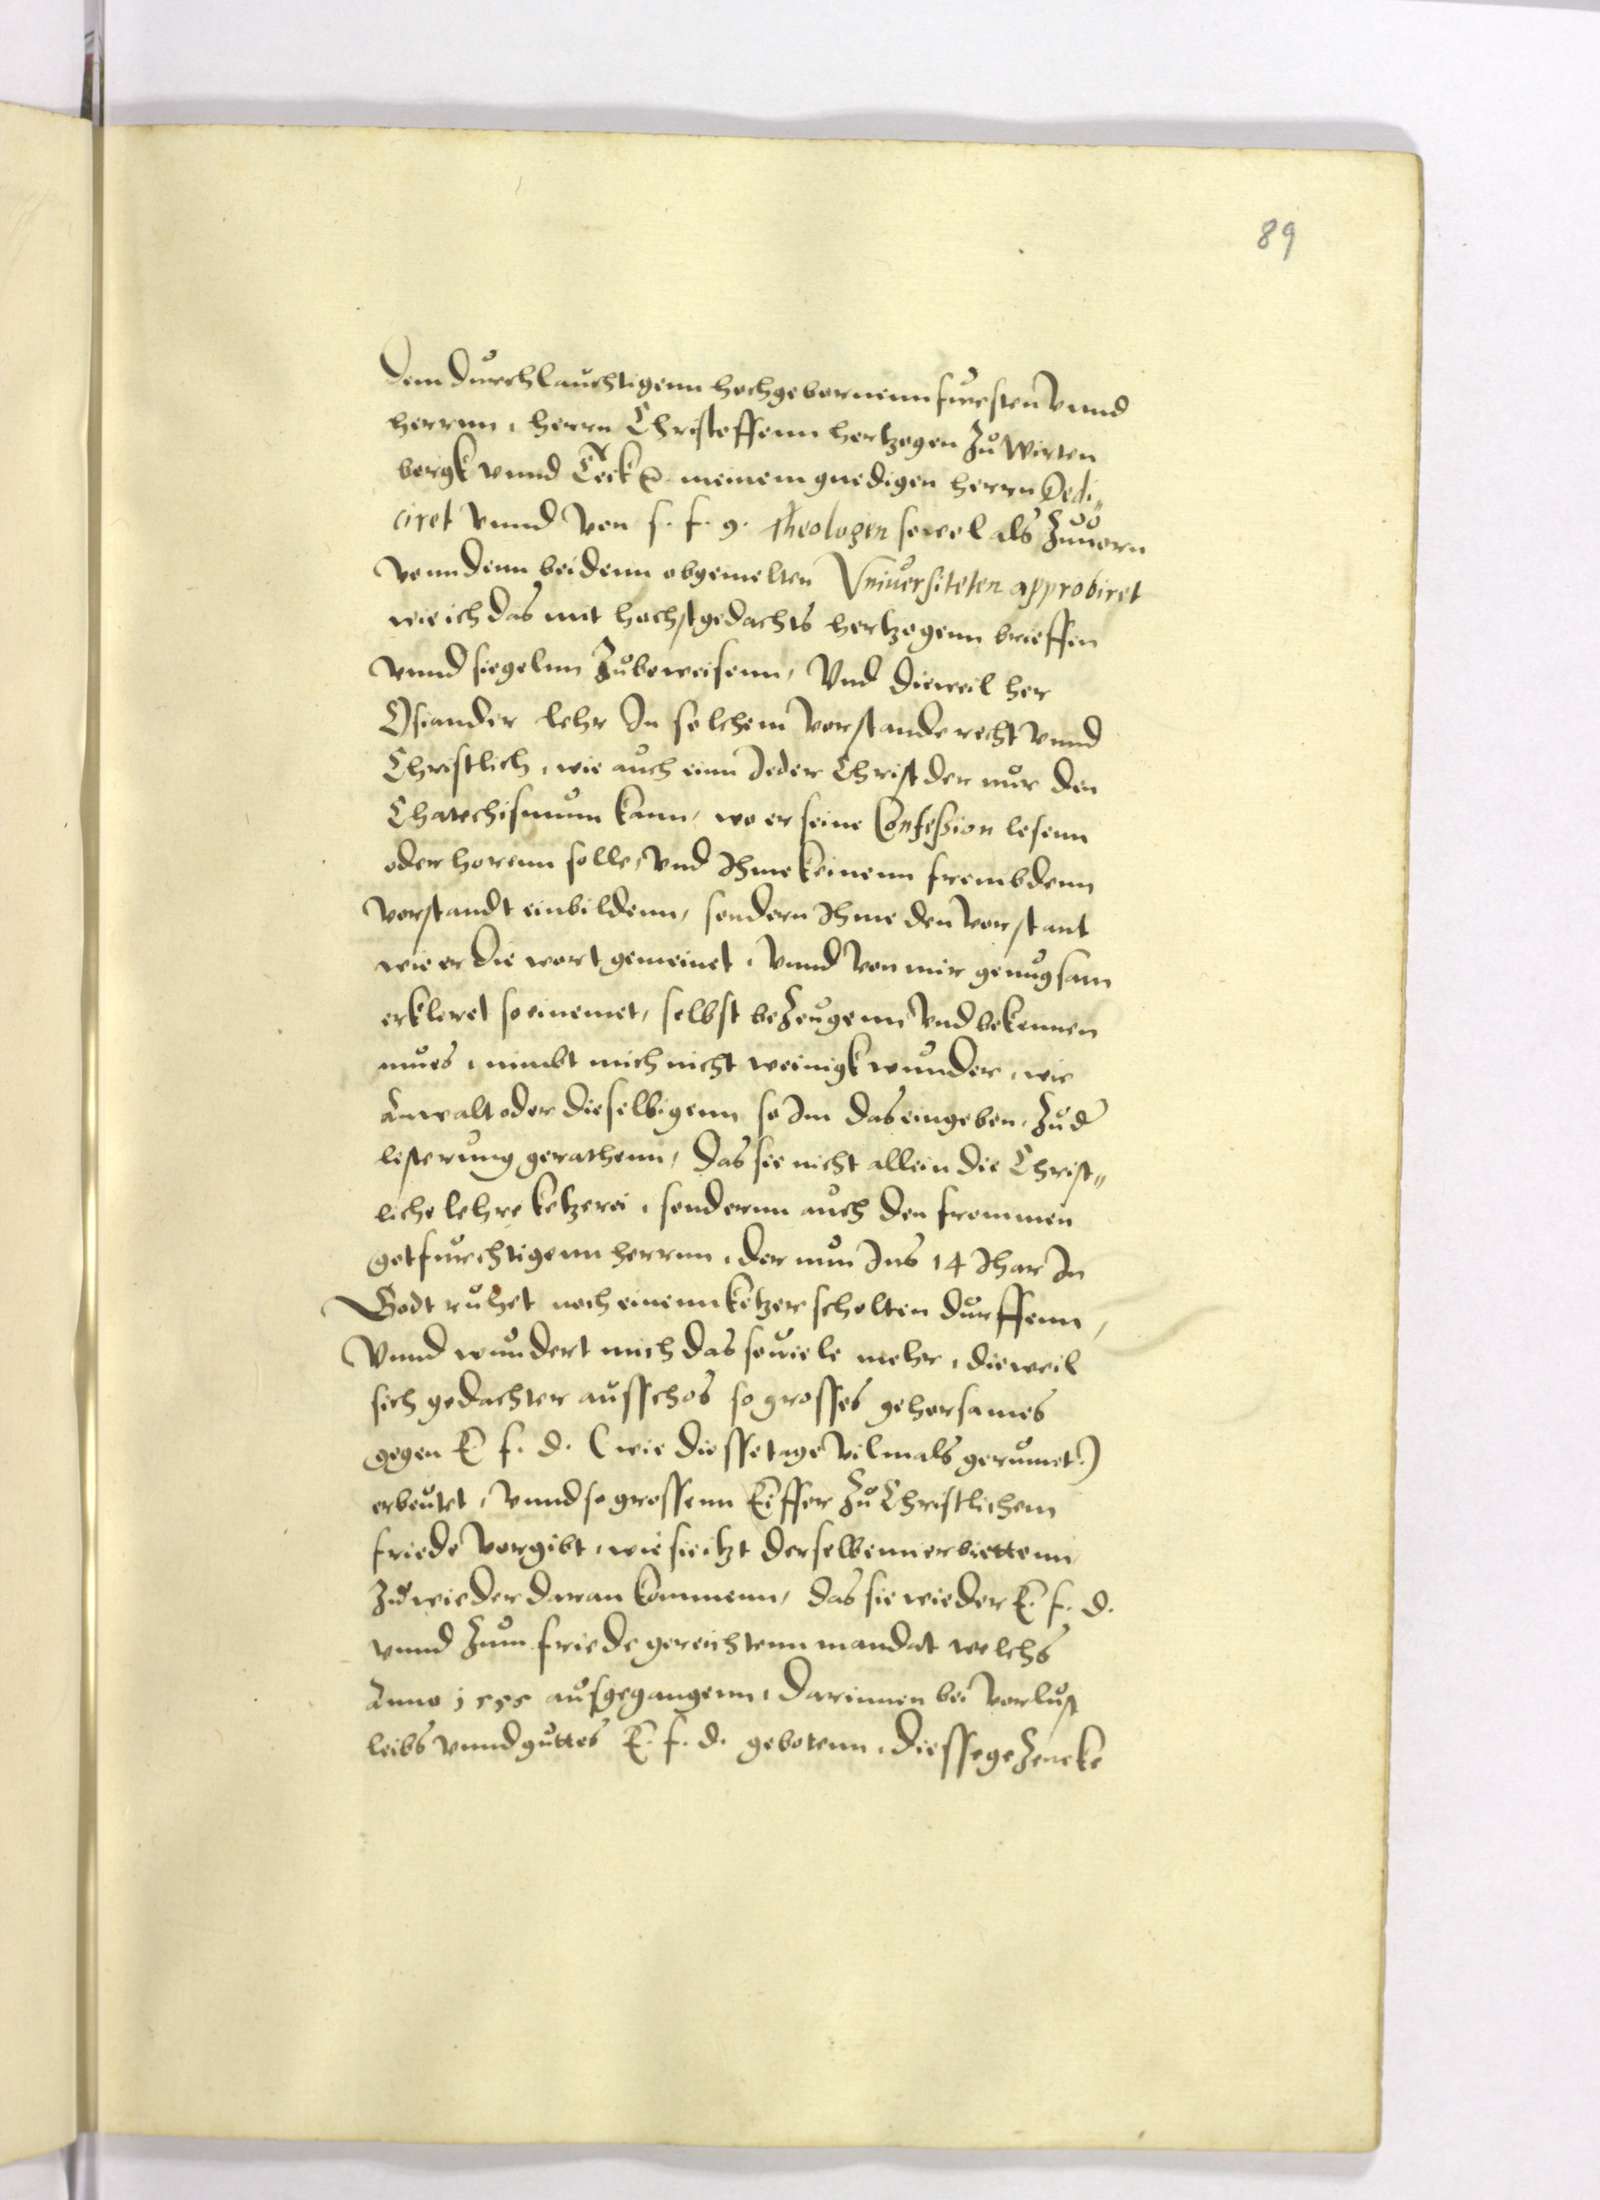 89
Dem durchlauchtigenn hochgebornenn fursten vnnd
herrnn, herrn Christoffenn hertzogen zu Wirten
bergk vnnd Teck &. meinem gnedigen herrn Dedi„
ciret vnnd von s. f. g. Theologen sowol als zuuorn
vonn denn beidenn obgemelten Vniuersiteten approbiret
wie ich das mit hochstgedachts hertzogenn brieffen
vnnd siegelnn zubeweisenn, Vnd dieweil her
Osiander lehr In solchem vorstande recht vnnd
Christlich, wie auch einn Jeder Christ der nur den
Chatechismum kann, wo er seine Confession lesenn
oder horenn solle, vnd Ihme keinenn frembdenn
vorstandt einbildenn, sondern Ihme den vorstant
wie er die wort gemeinet, vnnd von mir genugsam
erkleret so einemet, selbst bezeugenn vnd bekennen
mues, nimbt mich nicht weinigk wunder, wie
Anwalt oder dieselbigenn so Im das eingeben, zu d
lesterung gerathenn, das sie nicht allein die Christ„
liche lehre ketzerei, sondernn auch den frommen
gotfurchtigenn herrnn, der nun Ins 14 Jhar In
Godt ruhet noch einenn ketzer schelten durffenn,
Vnnd wundert mich das souiele mehr, dieweil
sich gedachter ausschos so grosses gehorsames
gegen E f. d. (wie diesse tage vilmals gerumet)
erbeutet, vnnd so grossenn Eiffer zu Christlichem
friede vorgibt, wie sie itzt derselbenn erbiettenn
zuwieder daran kommenn, das sie wieder E. f. d.
vnnd zum friede gereichtenn mandat welchs
Anno 1555 ausgegangenn, darinnen bei vorlust
leibs vnnd guttes E. f. d. gebotenn, diesse gezencke